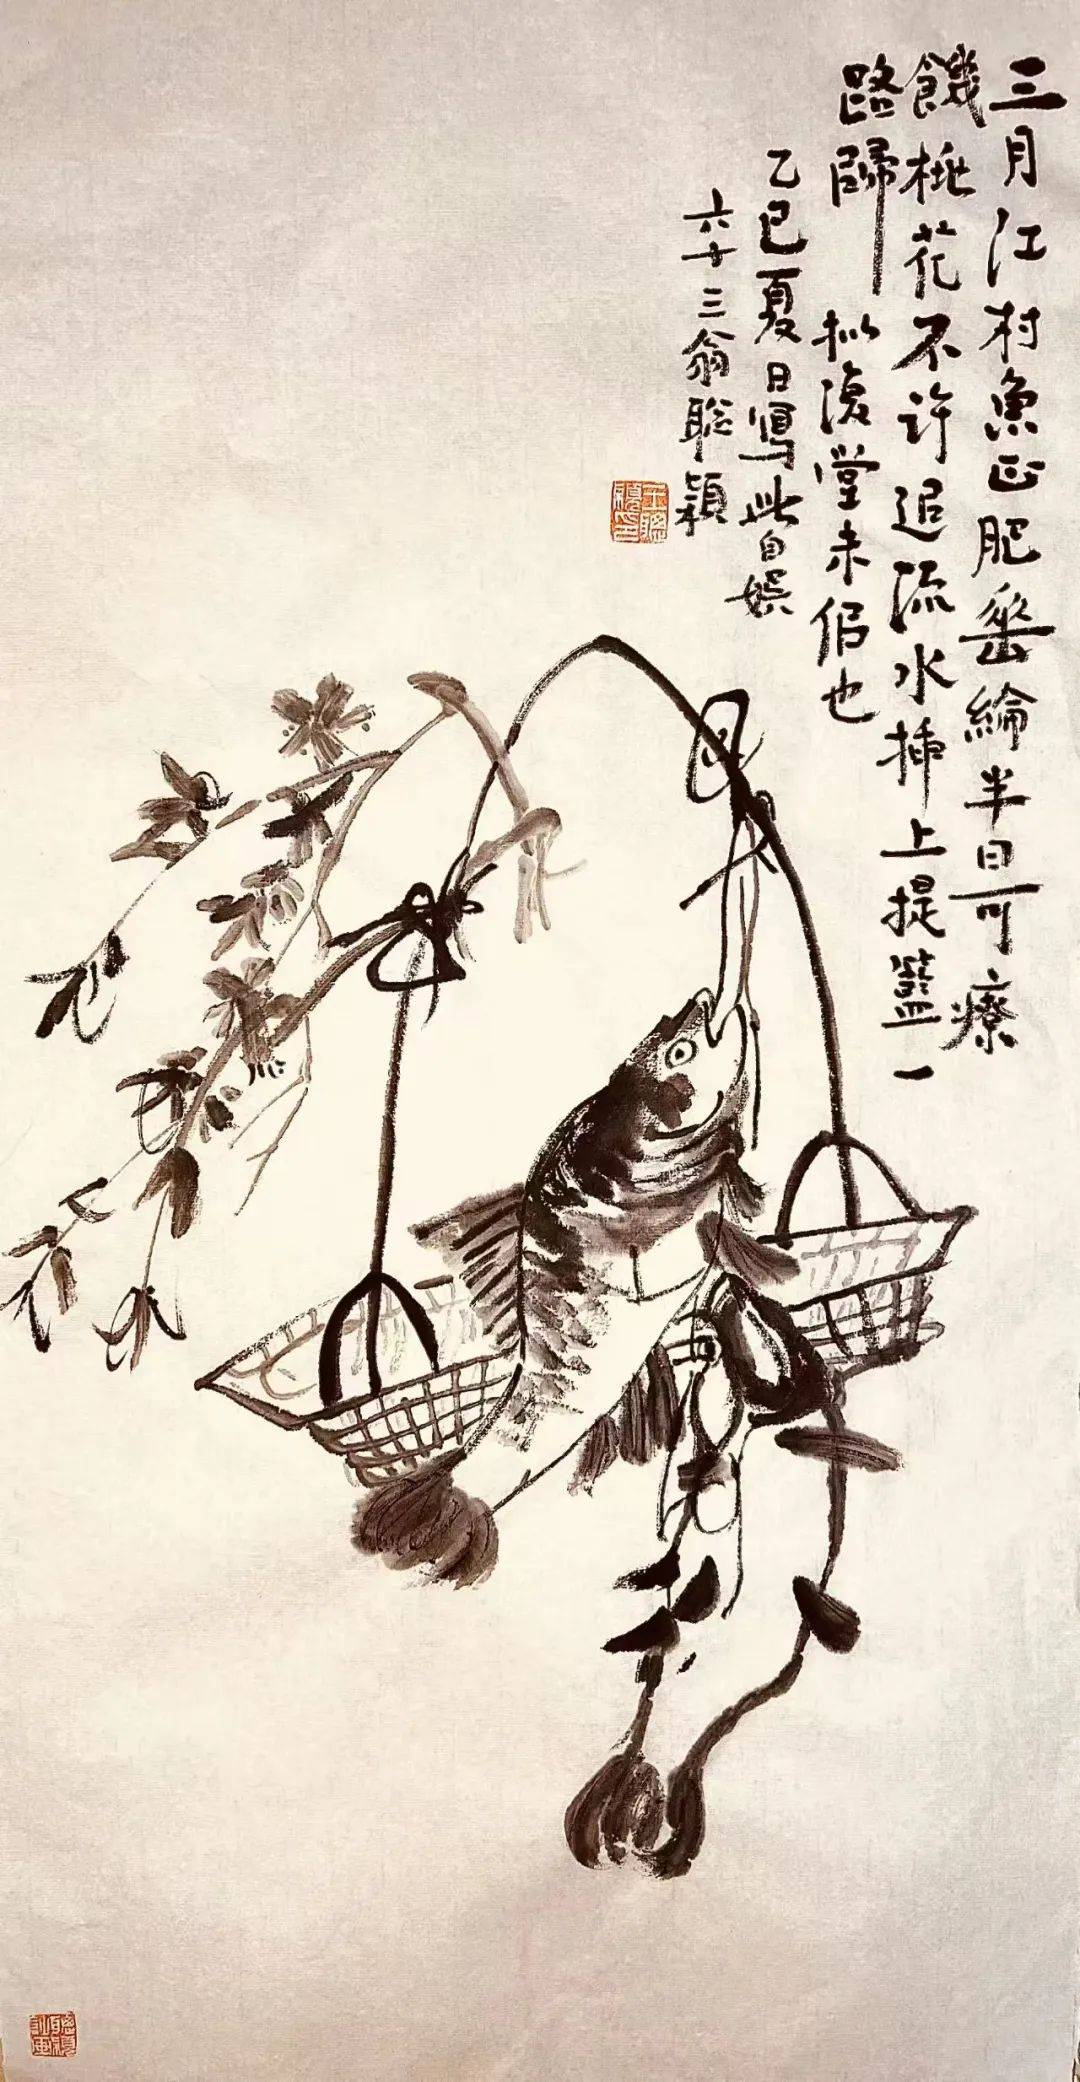 三月江村魚正肥垂綸半日可療
饑桃花不許追流水插上提籃一
路歸 拟復堂未佀也
乙巳夏日寫此自娛
六十三翁聪穎
王聰穎印